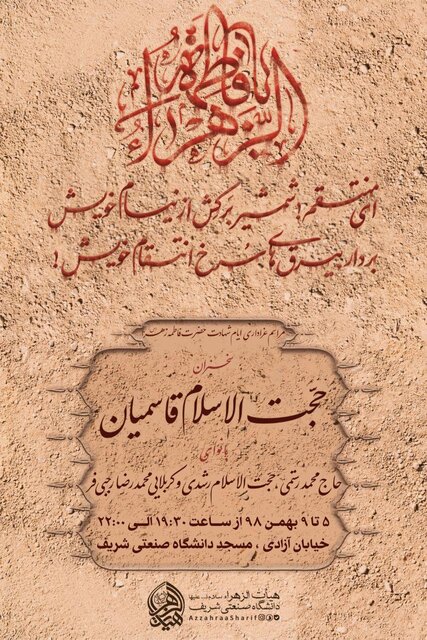 یا فاطمة الزهراء
ای منتقم! شمشیر برکش از نیام خویش
بردار بیرق های سرخ انتقام خویش!
مراسم عزاداری ایام شهادت حضرت فاطمه زهرا
سخنران
حجت الاسلام قاسمیان
بانوای
حاج محمد رستمی، حجت الاسلام رشدی و کربلایی محمدرضا رجبی فر
۵ تا ۹ بهمن ۹۸ از ساعت ۱۹:۳۰ الی ۲۲:۰۰
خیابان آزادی ، مسجد دانشگاه صنعتی شریف
هیأت الزهراء سلام‌الله علیها
دانشگاه صنعتی شریف
AzzahraaSharif